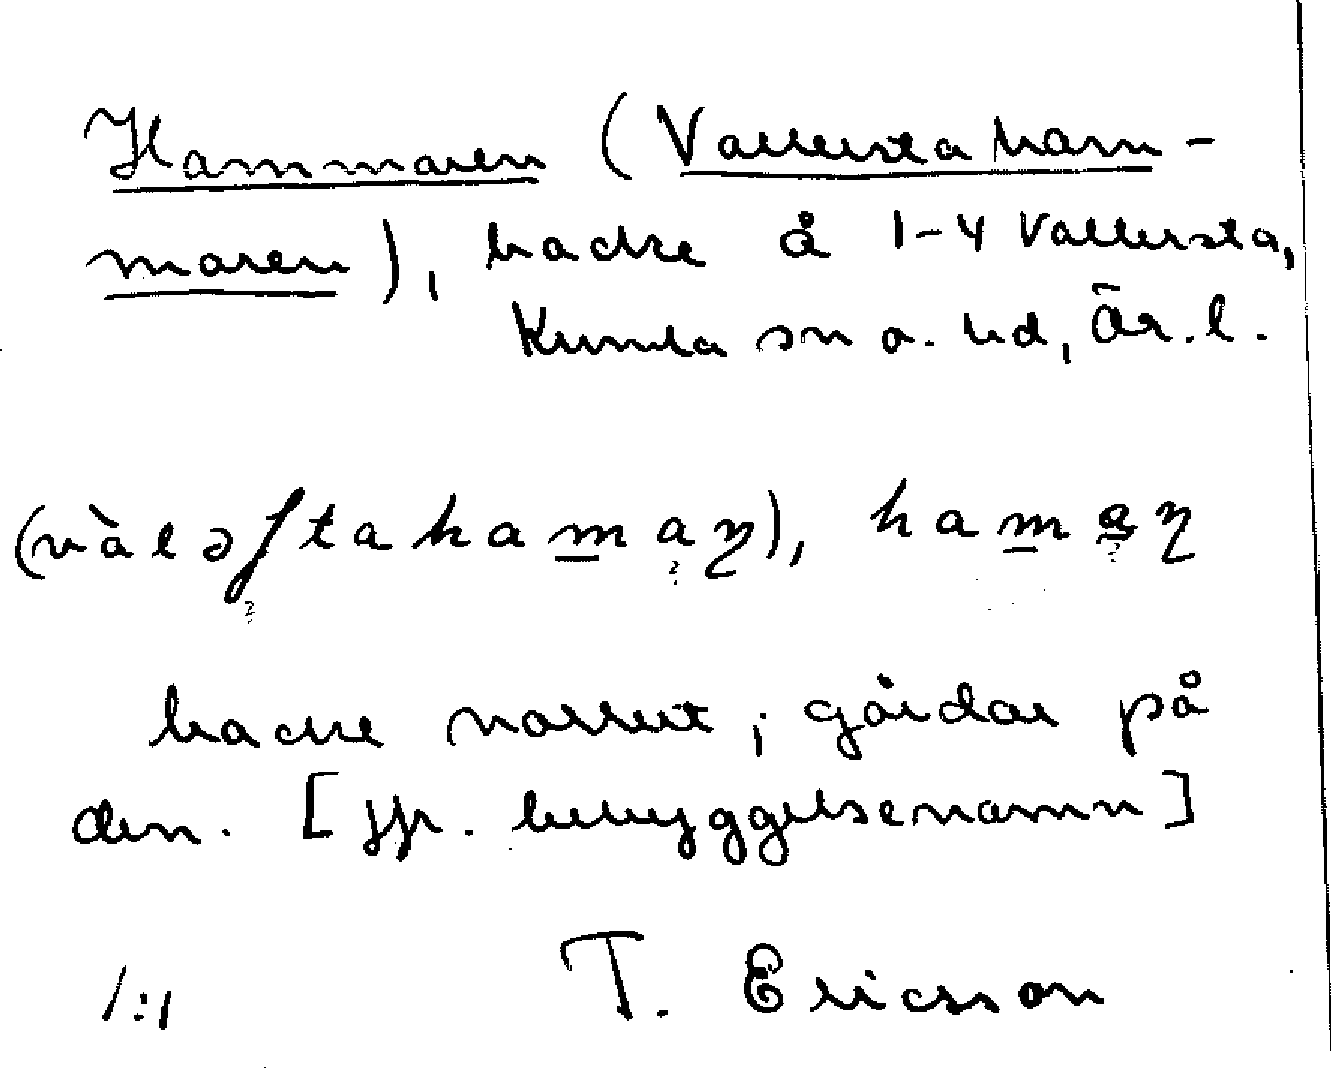 Hammaren (Vallersta ham-
maren), backe å 1-4 Vallersta,
Kumla sn o. hd, Ör. l.
(vàləſtahamaꞃ), hamaꞃ
backe norrut; gårdar på
den. [Jfr. bebyggelsenamn]
1:1 T. Ericsson